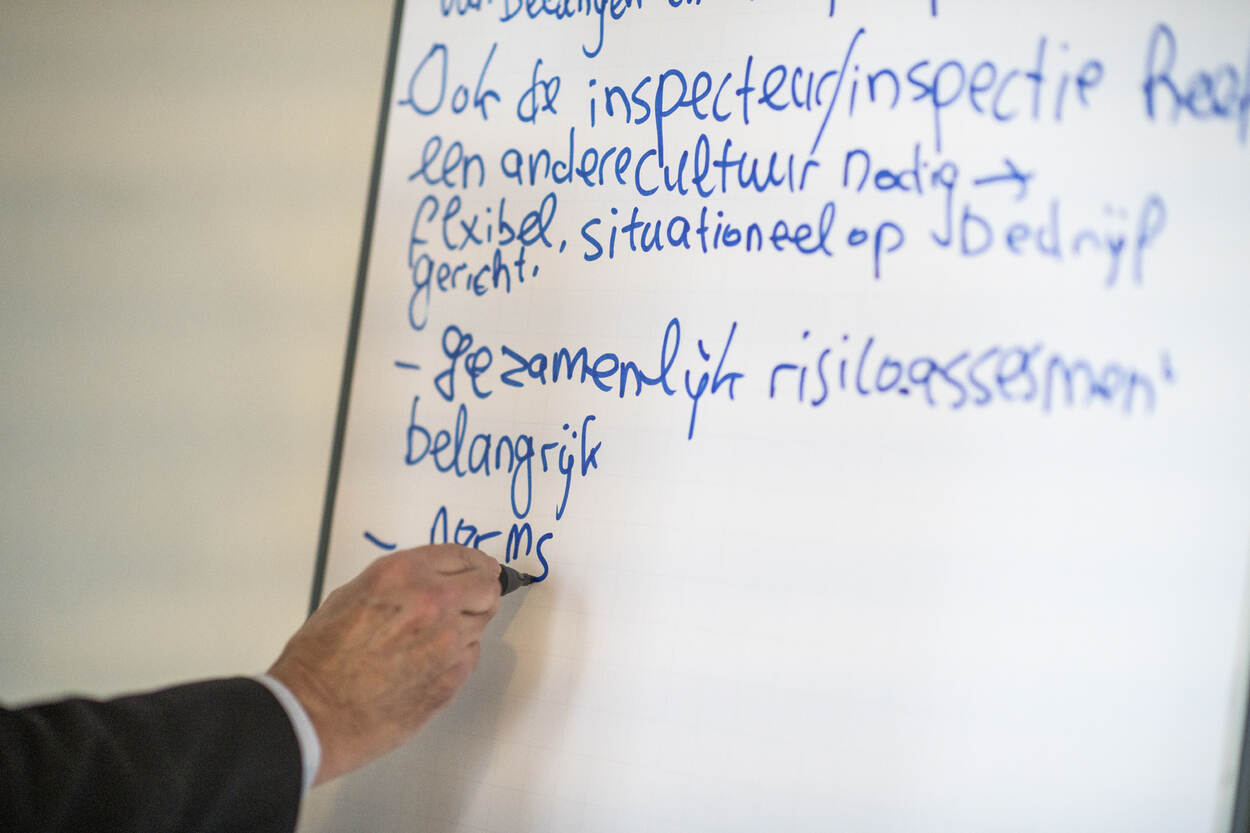 van belangen
- Ook de inspecteur/inspectie heef
een andere cultuur nodig →
flexibel, situationeel op bedrijf
gericht.
- gezamenlijk risicoassesment
belangrijk
- norms